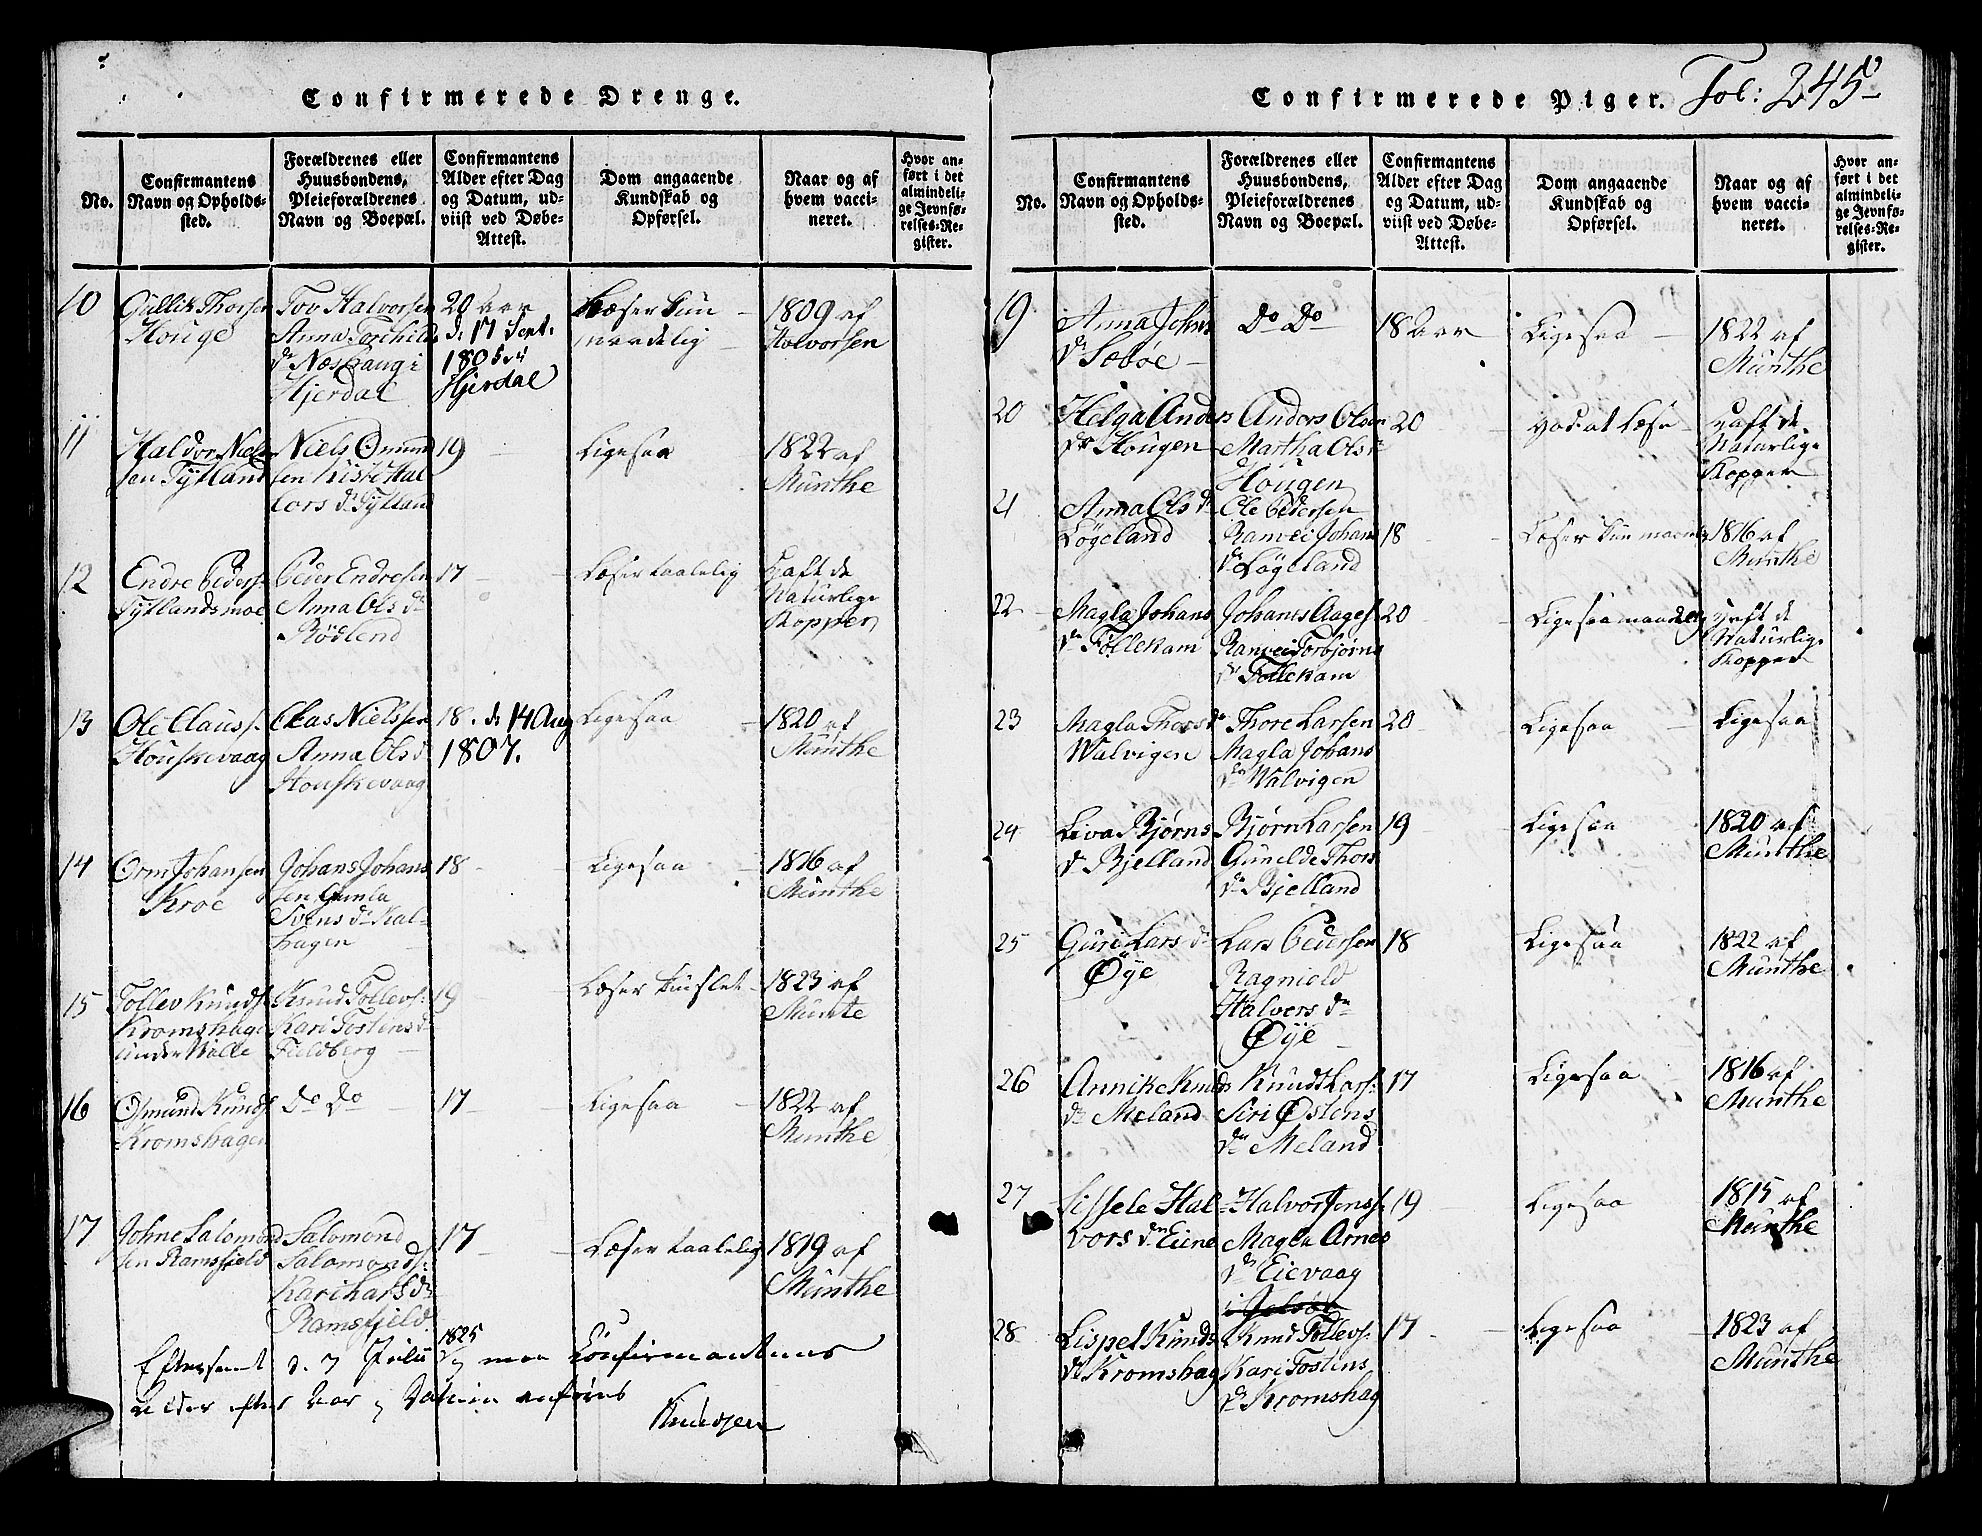 Confirmerede Drenge.
No.
Confirmantens
Navn og Opholds-
sted.
Forældrenes eller
Huusbondens,
Pleieforældrenes
Navn og Boepæl.
Confirmantens
Alder efter Dag
og Datum, ud-
viist ved Døbe-
Attest.
Dom angaaende
Kundskab og
Opførsel.
Naar og af
hvem vacci-
neret.
Hvor an-
ført i det
almindeli-
ge Jevnfø-
relses-Re-
gister.
10
Gullik Thorsen
Houge
Tov Halvorsen
Anna Torchild
dr Næshaug i
Hjerdal
20 Aar
d. 17 Sept.
1805
Hjerdal
Læser kun
maadelig
1809 af
Halvorsen
11
Haldor Niels
sen Tÿtland
Niels Omund
sen Kisti Hal
vors dr Tÿtland
19
Ligesaa
1822 af
Munthe
12
Endre Peders:
Tÿtlandsmoe
Peder Endresen
Anna Ols dr
Rødlend
17
Læser taalelig
Haft de
Naturlige
Kopper
13
Ole Clauss:
Houskevaag
Claas Nielssen
Anna Ols dr
Houskevaag
18. d. 14 Aug
1807.
Ligesaa
1820 af
Munthe
14
Orm Johansen
Kroe
Johans Johan
sen Gunla
Svens dr Kal-
hagen
18
Ligesaa
1816 af
Munthe
15
Tollev Knuds:
Kromshage
under Valle
Knud Tollevs:
Kari Tostens dr
Fieldberg
19
Læser kun slet
1823 af
Munte
16
Osmund Knuds:
Kromshagen
Do Do
17
Ligesaa
1822 af
Munthe
17
Johne Salomond
sen Ramsfield
Salomond
Salomonds:
Kari Lars dr
Ramsfjeld.
17
Læser taalelig
1819 af
Munthe
Efterseet d. 7 Julii 1825 og maa Confirmanternes
Alder efter Aar og Datum anføres
Knudsen
Confirmerede Piger.
Fol: 245
No.
Confirmantens
Navn og Opholds-
sted.
Forældrenes eller
Huusbondens,
Pleieforældrenes
Navn og Boepæl.
Confirmantens
Alder efter Dag
og Datum, ud-
viist ved Døbe-
Attest.
Dom angaaende
Kundskab og
Opførsel.
Naar og af
hvem vacci-
neret.
Hvor an-
ført i det
almindeli-
ge Jevnfø-
relses-Re-
gister.
19
Anna Johns
dr Sebøe
Do Do
18 Aar
Ligesaa
1822 af
Munthe
20
Helga Anders
dr Hougen
Anders Olsen
Martha Ols dr
Hougen
20
God at læse
Haft de
Naturlige
Kopper
21
Anna Ols dr
Løgeland
Ole Pedersen
Ranvei Johans
dr Løgeland
18
Læser kun maadelig
1816 af
Munthe
22
Magla Johans
dr Follekam
Johans Aages:
Ranvei Torbjørns
dr Follekam
20
Ligesaa maadelig
Haft de
Naturlige
Kopper
23
Magla Thors dr
Walvigen
Thore Larsen
Magla Johans
dr Walvigen
20
Ligesaa
Ligesaa
24
Liva Bjørns
dr Bjelland
Bjørn Larsen
Gunelde Thors
dr Bjelland
19
Ligesaa
1820 af
Munthe
25
Guri Lars dr
Øÿe
Lars Pedersen
Ragnield
Halvers dr
Øÿe
18
Ligesaa
1822 af
Munthe
26
Annike Knuds
dr Meland
Knudt Lars:
Siri Østens
dr Meland
17
Ligesaa
1816 af
Munthe
27
Sissele Hal-
vors dr Eine
Halvor Jenss:
Magla Arnes
dr Eievaag
19
Ligesaa
1815 af
Munthe
28
Lispet Knuds
dr Kromshag
Knud Tollevs:
Kari Tostens
dr Kromshag
17
Ligesaa
1823 af
Munthe